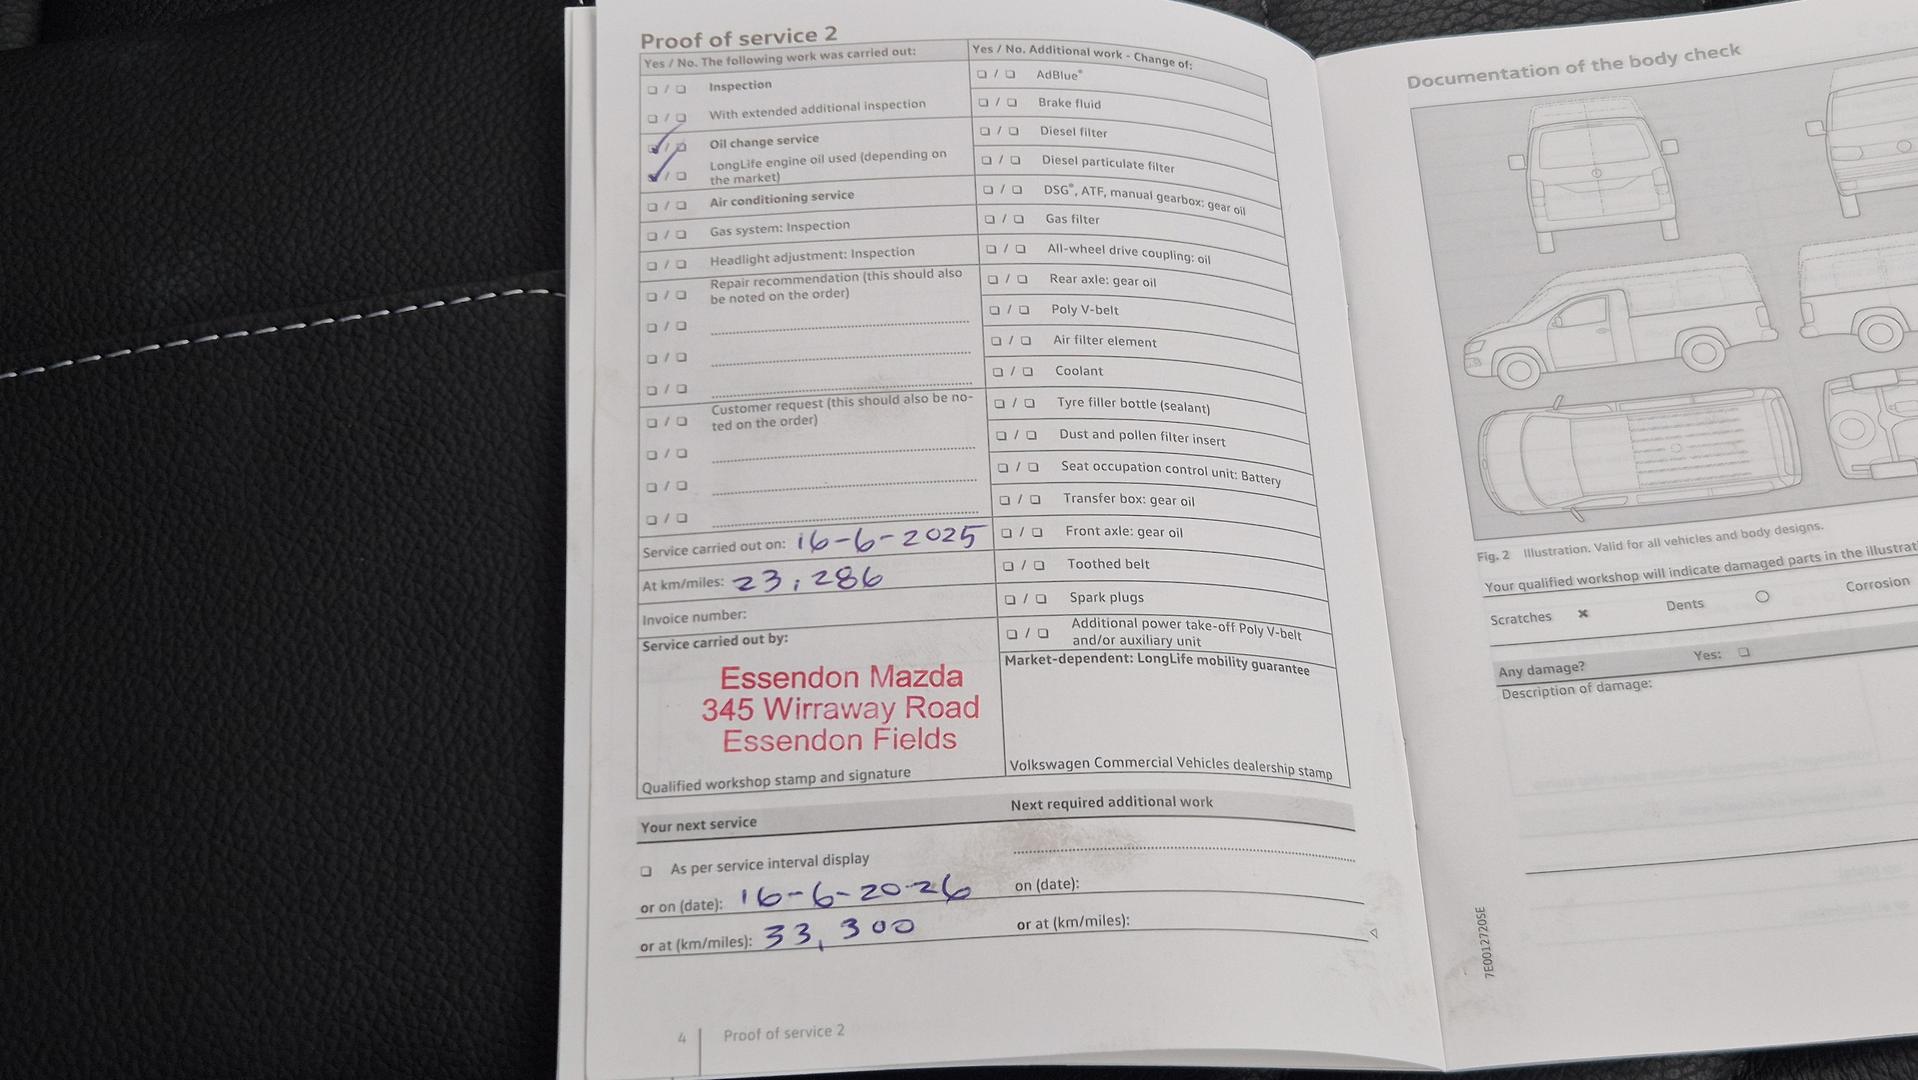 Proof of service 2
Yes / No. The following work was carried out:
❑ / ❑ Inspection
❑ / ❑ With extended additional inspection
❑ / ❑ Oil change service
❑ / ❑ LongLife engine oil used (depending on
the market)
❑ / ❑ Air conditioning service
❑ / ❑ Gas system: Inspection
❑ / ❑ Headlight adjustment: Inspection
❑ / ❑ Repair recommendation (this should also
be noted on the order)
❑ / ❑
❑ / ❑
❑ / ❑
❑ / ❑ Customer request (this should also be no-
ted on the order)
❑ / ❑
❑ / ❑
❑ / ❑
Service carried out on: 16-6-2025
At km/miles: 23,286
Invoice number:
Service carried out by:
Essendon Mazda
345 Wirraway Road
Essendon Fields
Qualified workshop stamp and signature
Yes / No. Additional work - Change of:
❑ / ❑ AdBlue®
❑ / ❑ Brake fluid
❑ / ❑ Diesel filter
❑ / ❑ Diesel particulate filter
❑ / ❑ DSG®, ATF, manual gearbox: gear oil
❑ / ❑ Gas filter
❑ / ❑ All-wheel drive coupling: oil
❑ / ❑ Rear axle: gear oil
❑ / ❑ Poly V-belt
❑ / ❑ Air filter element
❑ / ❑ Coolant
❑ / ❑ Tyre filler bottle (sealant)
❑ / ❑ Dust and pollen filter insert
❑ / ❑ Seat occupation control unit: Battery
❑ / ❑ Transfer box: gear oil
❑ / ❑ Front axle: gear oil
❑ / ❑ Toothed belt
❑ / ❑ Spark plugs
❑ / ❑ Additional power take-off Poly V-belt
and/or auxiliary unit
Market-dependent: LongLife mobility guarantee
Volkswagen Commercial Vehicles dealership stamp
Your next service
❑ As per service interval display
or on (date): 16-6-2026
or at (km/miles): 33,300
Next required additional work
on (date):
or at (km/miles):
4 Proof of service 2
Documentation of the body check
Fig. 2 Illustration. Valid for all vehicles and body designs.
Your qualified workshop will indicate damaged parts in the illustrat
Scratches ✖ Dents ○ Corrosion
Any damage? Yes: ❑
Description of damage:
7E0012720SE